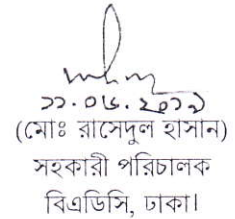 ১১.০৬.২০১৯
(মোঃ রাসেদুল হাসান)
সহকারী পরিচালক
বিএডিসি, ঢাকা।